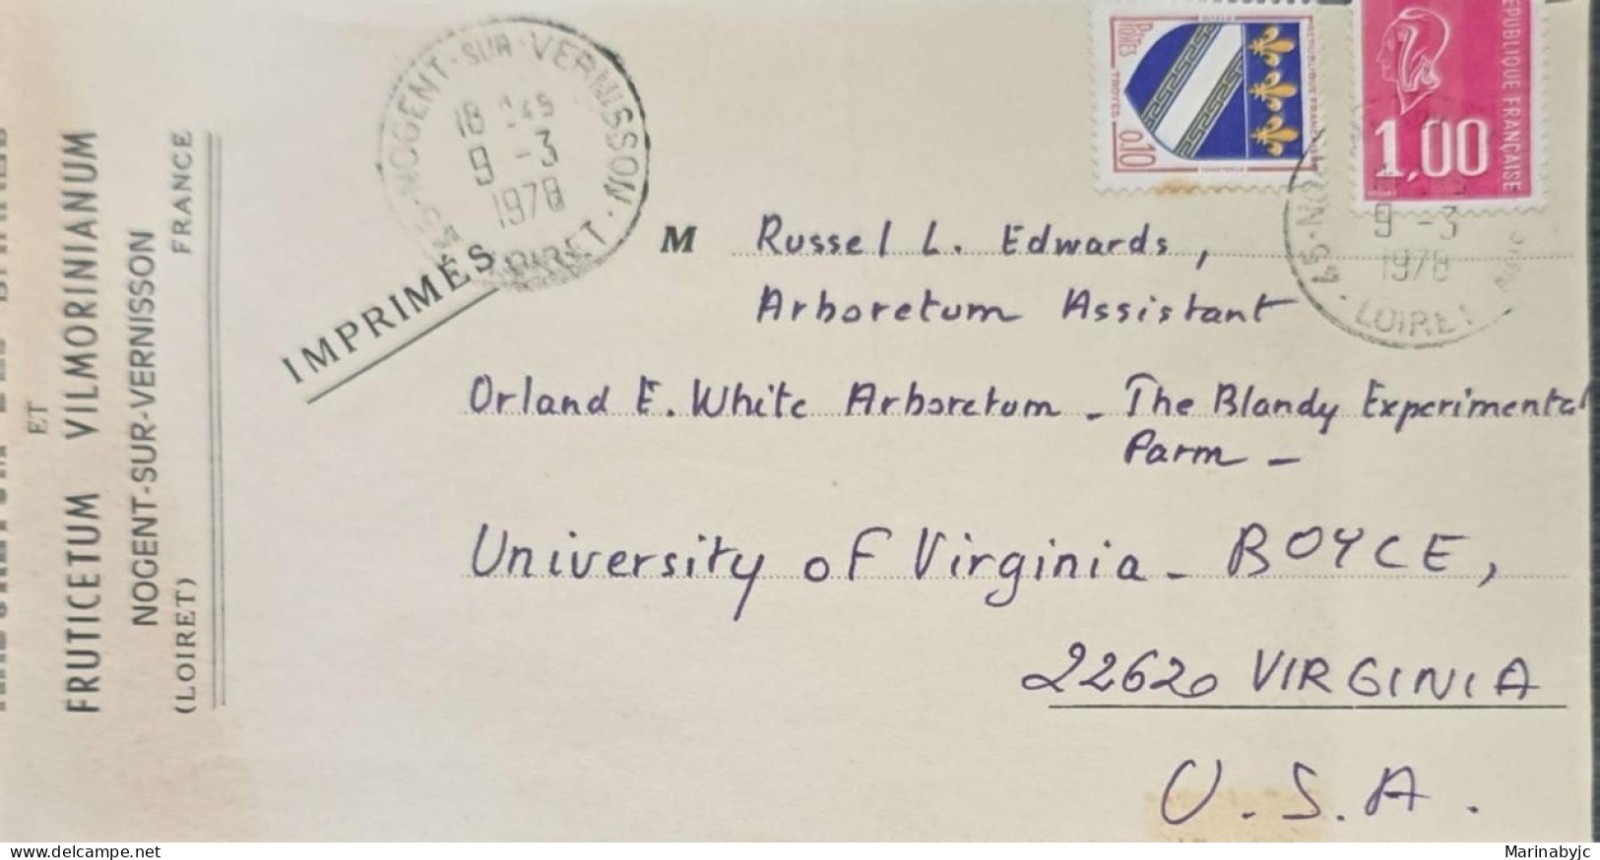 ET
FRUTICETUM VILMORINIANUM
NOGENT-SUR-VERNISSON
(LOIRET) FRANCE
IMPRIMÉS
45-NOGENT-SUR-VERNISSON
18 H45
9 -3
1978
LOIRET
POSTES
TROYES
0,10
REPUBLIQUE FRANCAISE
REPUBLIQUE FRANÇAISE
1,00
9 -3
1978
LOIRET
M Russel L. Edwards,
Arboretum Assistant
Orland E. White Arboretum - The Blandy Experimental
Parm -
University of Virginia - BOYCE,
22620 VIRGINIA
U.S.A.
www.delcampe.net
Marinabyjc